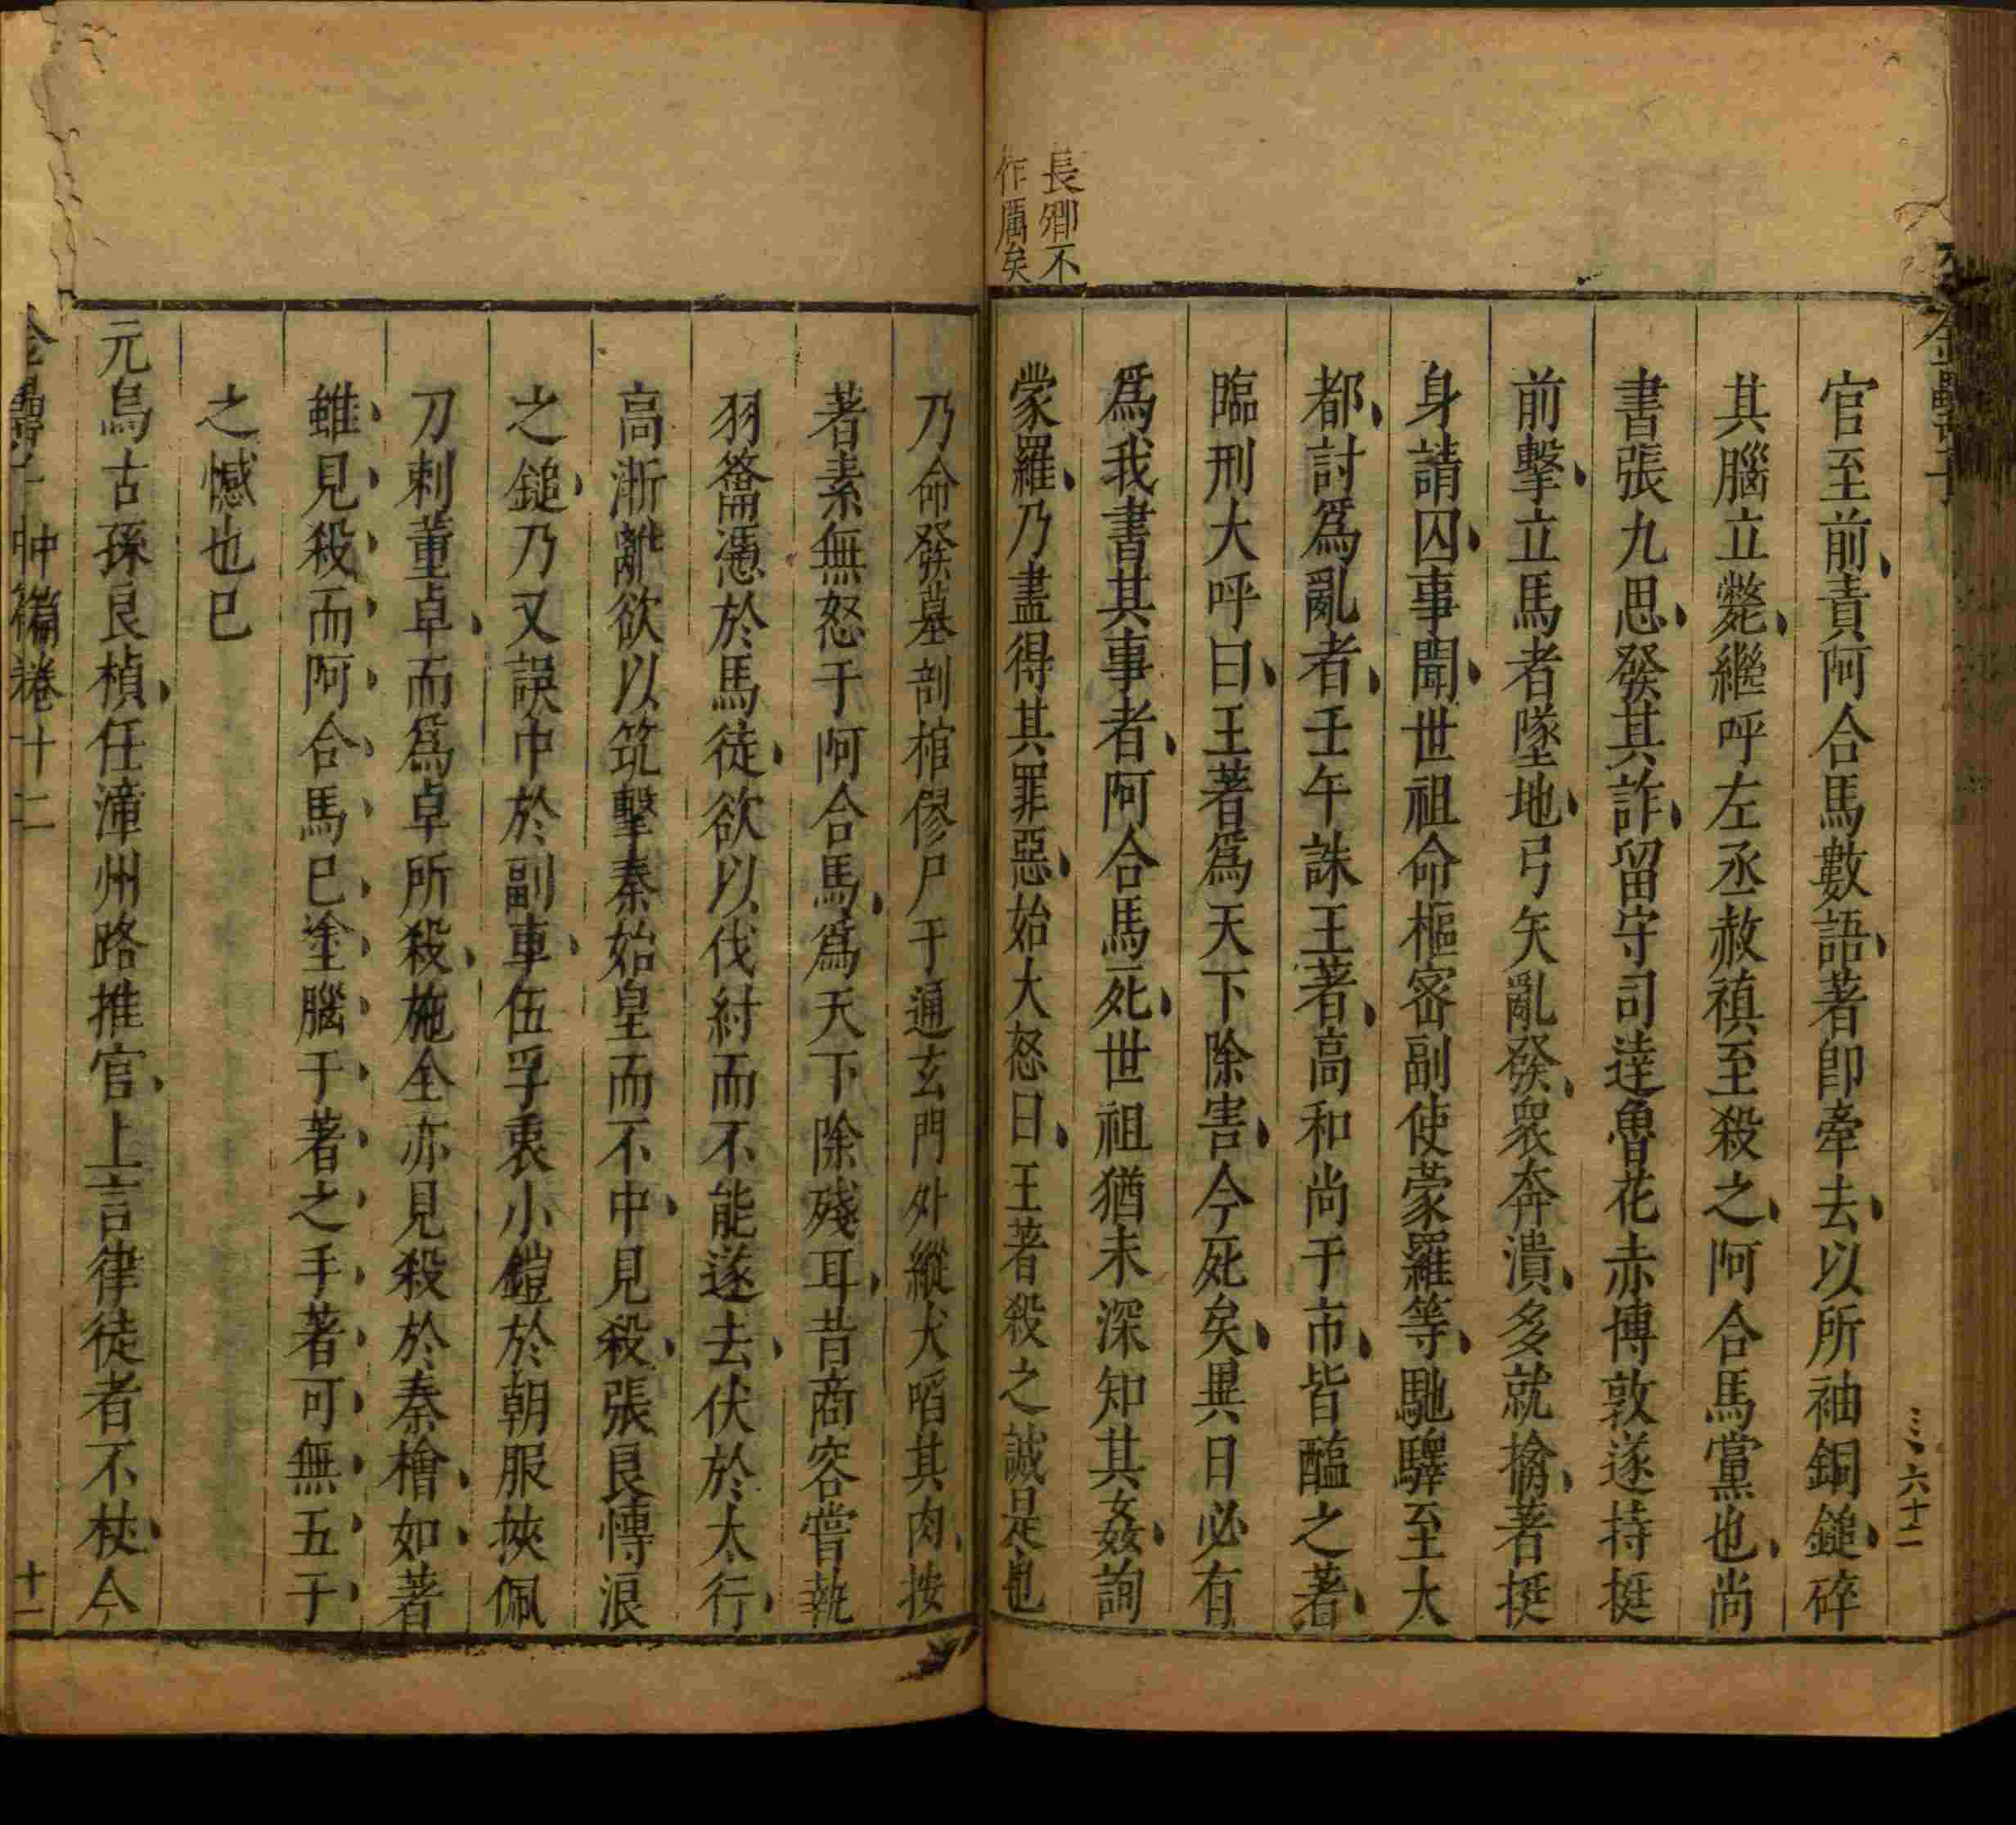 官至前責阿合馬數語著卽牽去以所袖銅鎚碎
其腦立斃繼呼左丞赦禎至殺之阿合馬黨也尚
書張九思發其詐留守司達魯花赤博敦遂持挺
前擊立馬者墜地弓矢亂發衆奔潰多就擒著挺
身請囚事聞世祖命樞密副使蒙羅等馳驛至大
都討爲亂者壬午誅王著高和尚于市皆醢之著
臨刑大呼曰王著爲天下除害今死矣異日必有
爲我書其事者阿合馬死世祖猶未深知其姦詢
蒙羅乃盡得其罪惡始大怒曰王著殺之誠是也
長卿不
作厲矣
三、六十二
乃命發墓剖棺僇尸于通玄門外縱犬啗其肉按
著素無怒于阿合馬爲天下除殘耳昔商容嘗執
羽籥憑於馬徒欲以伐紂而不能遂去伏於太行
高漸離欲以筑擊秦始皇而不中見殺張良慱浪
之鎚乃又誤中於副車伍孚衷小鎧於朝服挾佩
刀刺董卓而爲卓所殺施全亦見殺於秦檜如著
雖見殺而阿合馬已塗腦于著之手著可無五子
之憾也已
元烏古孫良楨任漳州路推官上言律徒者不杖今
中篇卷十二
十一